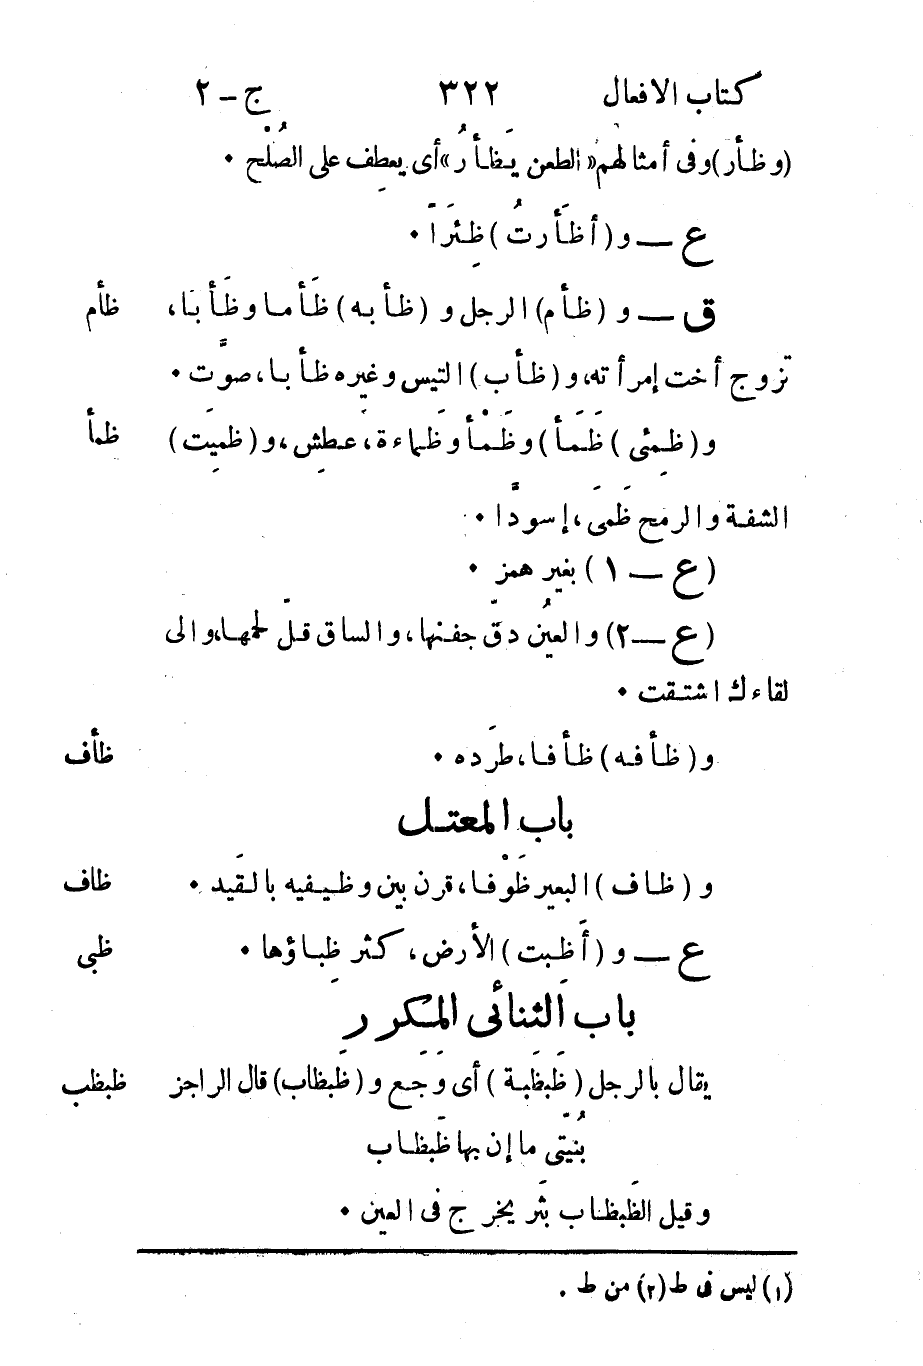 كتاب الافعال ٣٢٢ ج – ٢
(وظأر) وفى أمثالهُم «الطعن يَظأرُ» أى يعطف على الصُلْح ٠
ع — و (أظَأَرتُ) ظِئَرَاً ٠
ق — و (ظأم) الرجل و (ظأبه) ظَأما وظَأبَا، ظأم
تزوج أخت إمرأته، و (ظأب) التيس وغيره ظأبا، صوَّت ٠
و (ظِمئى) ظَمَأ) وظَمْأ وظَماءة، عَطِش، و (ظمِيَت) ظمأ
الشفة والرمح ظَمىً، إسودَّا ٠
(ع — ١) بغير همز ٠
(ع — ٢) والعينُ دقّ جفنها، والساق قلّ لحمها، والى
لقاءك اشتقت ٠
و (ظأفه) ظأفا، طرَده ٠ ظأف
باب المعتل
و (ظاف) البعير ظَوْفا، قرن بين وظيفيه بالقَيد ٠ ظاف
ع — و (أَظبت) الأرض، كثر ظِباؤها ٠ ظبى
باب الثنائى المكرر
يقال بالرجل (ظَبظَبة) أى وَجَع و (ظَبظاب) قال الراجز ظبظب
بُنيّتى ما إن بها ظَبظاب
وقيل الظَبظاب بَثر يخرج فى العين ٠
(١) ليس فى ط (٢) من ط .